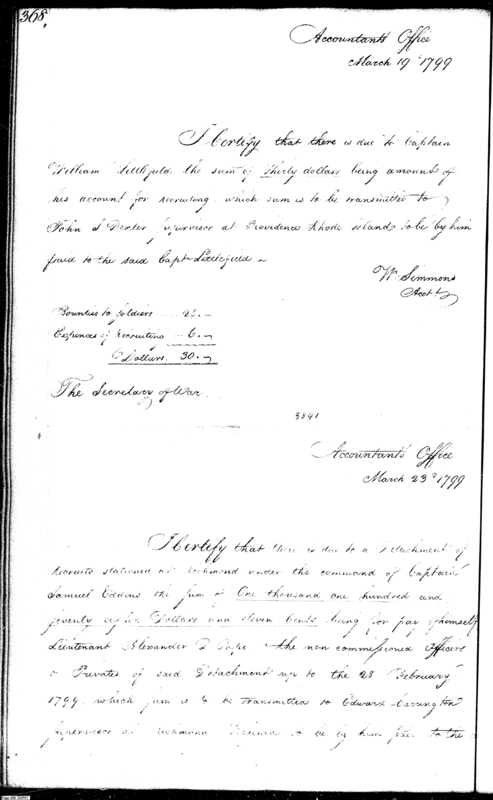 368.
Accountants Office
March 19th 1799
I Certify that there is due to Captain
William Littlefield the sum of Thirty dollars being amount of
his account for Recruiting which sum is to be transmitted to
John S Dexter Supervisor at Providence Rhode island to be by him
paid to the said Capt Littlefield
Wm Simmons
Acctt
Bounties to Soldiers 24.
Expences of Recruiting 6.
Dollars 30.
The Secretary of War
3841
Accountants Office
March 23d 1799
I Certify that there is due to a Detachment of
Recruits stationed at Richmond under the command of Captain
Samuel Eddens the sum of One thousand one hundred and
seventy eight Dollars and eleven Cents being for pay of himself
Lieutenant Alexander D Pope the non commissioned Officers
& Privates of said Detachment up to the 28 February
1799 which sum is to be transmitted to Edward Carrington
Supervisor at Richmond Virginia to be by him paid to the